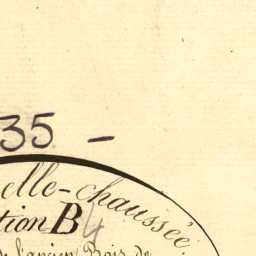 35 -
elle-chaussée
tion B
4
de l'ancien Bois de